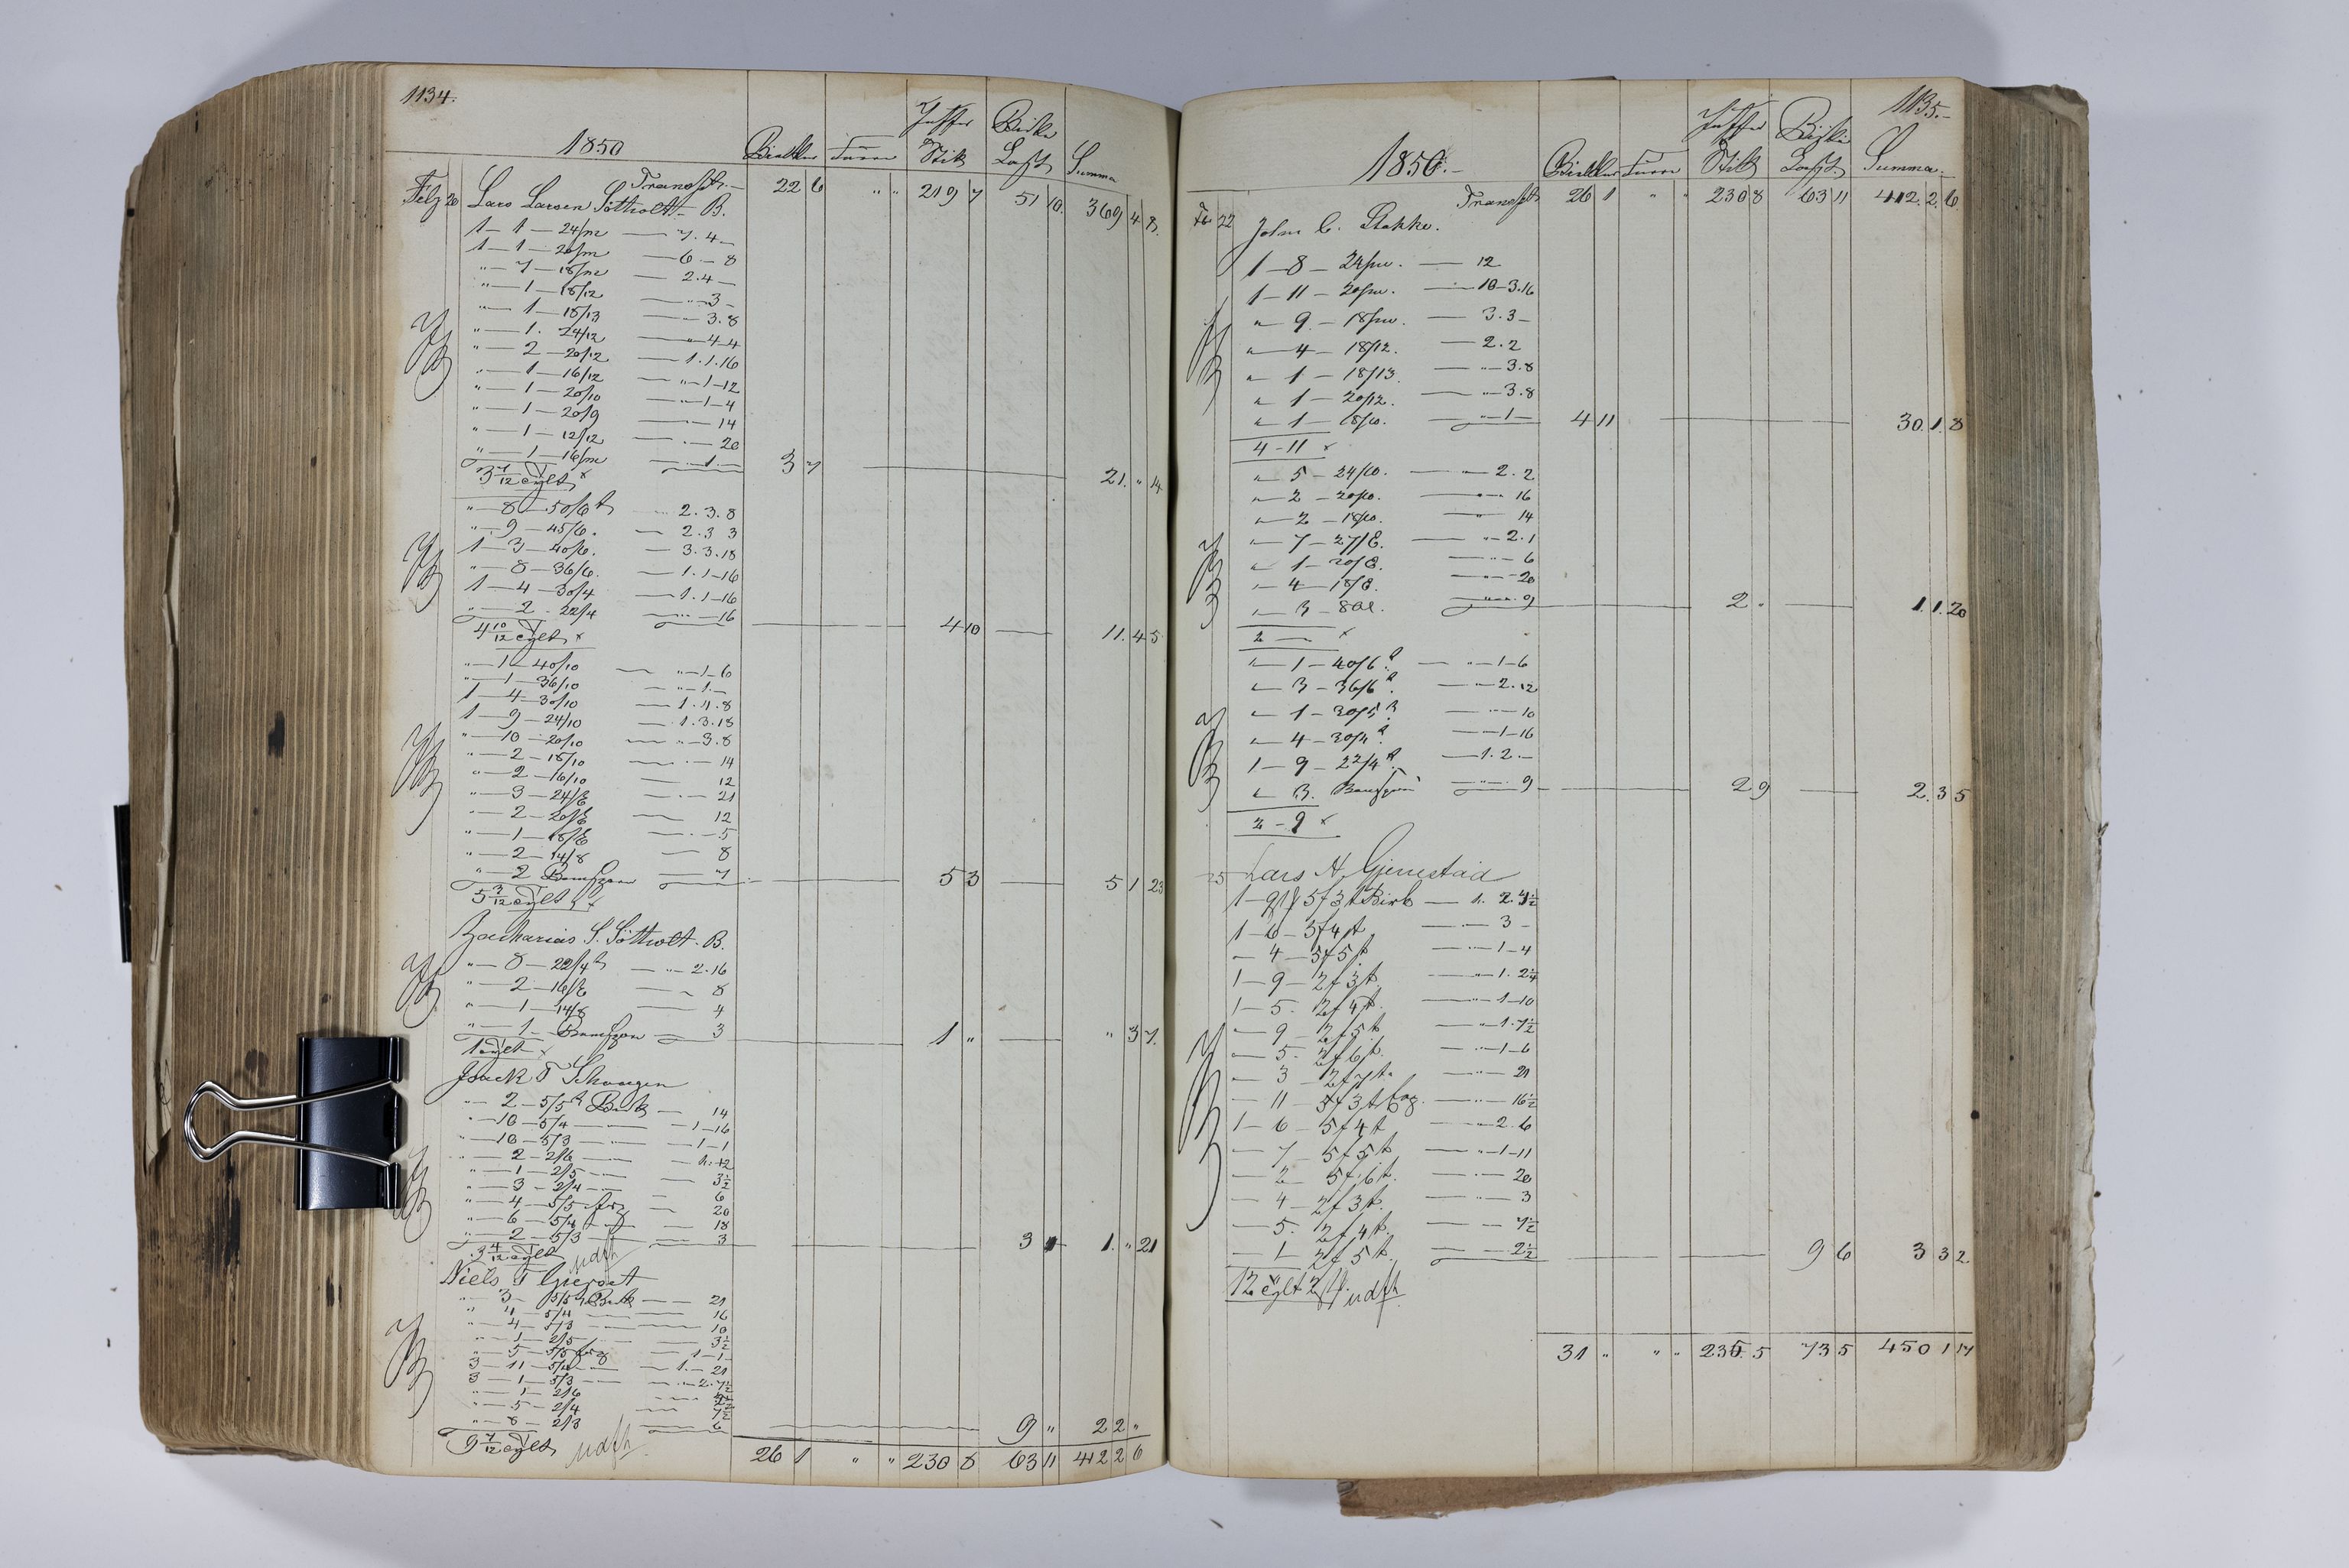 1134.
1850 Bielker Furer Juffer Stik Birke Last Summa
Transpt. 22 6 " " 219 7 51 10 369 4 8
Feb 20 Lars Larsen Söttholt - B.
1 - 1 - 24/m - 7.4 -
1 - 1 - 20/m - 6 - 8
" - 7 - 18/m - 2.4 -
" - 1 - 18/12 - " - 3 -
" - 1 - 18/13 - 3.8
" - 1. 24/12 - " 4-4
" - 2 - 20/12 - 1.1.16
" - 1 - 16/12 - " - 1-12
" - 1 - 20/10 - " - 1-4
" - 1 - 20/9 - 14
" - 1 - 12/12 - 20
" - 1 - 16/m - 1 -
3 7/12 Tylt x 3 7 21. " 14
" - 8 - 50/6 - 2.3.8
" - 9 - 45/6. - 2.3 3
1 - 3 - 40/6. - 3.3.18
" - 8 - 36/6. - 1.1-16
1 - 4 - 30/4 - 1.1-16
" - 2 - 22/4 - 16
4 10/12 Tylt x 4 10 11.4 5
" - 1 - 40/10 - " - 1-6
" - 1 - 36/10 - " - 1 -
1 - 4 - 30/10 - 1.4.8
1 - 9 - 24/10 - 1.3.18
" - 10 - 20/10 - " - 3.8
" - 2 - 18/10 - 14
" - 2 - 16/10 - 12
" - 3 - 24/8 - 21
" - 2 - 20/8 - 12
" - 1 - 18/8 - 5
" - 2 - 14/8 - 8
" - 2 - 7
5 3/12 Tylt x 5 3 5 1 23
Zacharias S. Söttholt - B.
" - 8 - 22/4 - " - 2.16
" - 2 - 16/8 - 8
" - 1 - 14/8 - 4
" - 1 - 3
1 Tylt x 1 " " 3 7.
Isack T
" - 2 - 5/5 Birk - 14
" - 10 - 5/4 - 1-16
" - 10 - 5/3 - 1-1
" - 2 - 2/6 - 12
" - 1 - 2/5 - 3½
" - 3 - 2/4 - 6
" - 4 - 5/5 - 20
" - 6 - 5/4 - 18
" - 2 - 5/3 - 3
3 4/12 Tylt udst 3 1. " 21
Niels T Gierset
" - 3 - 5/5 Birk - 21
" - 4 - 5/4 - 16
" - 4 - 5/3 - 10
" - 1 - 2/5 - 3½
" - 5 - 5/5 - 1-1-
3 - 11 - 5/4 - 1. - 21
3 - 1 - 5/3 - 2.7½
" - 1 - 2/6
" - 5 - 2/4
" - 8 - 2/3 - 6
9 7/12 Tylt udst 9 " 2 2 "
26 1 " " 230 8 63 11 412 2 6
1135.-
1850.- Bielker Furer Juffer Stik Birke Last Summa.
Transpt 26 1 " " 230 8 63 11 412.2.6
Feb 22 John C. Stokke.
1 - 8 - 24/m. - 12
1 - 11 - 20/m. - 10-3.16
" - 9 - 18/m. - 3.3 -
" - 4 - 18/12. - 2.2
" - 1 - 18/13. - " - 3.8
" - 1 - 20/12. - " - 3.8
" - 1 - 18/10. - " - 1 - 4 11 30.1.8
4 - 11 x
" - 5 - 24/10. - 2.2
" - 2 - 20/10. - 16
" - 2 - 18/10. - 14
" - 7 - 27/8. - " - 2.1
" - 1 - 20/8. - 6
" - 4 - 18/8. - 20
" - 3 - 8al. - 9 2 " 1.1.20
2 - x
" - 1 - 40/6. - " - 1-6
" - 3 - 36/6. - 2.12
" - 1 - 30/5 - 10
" - 4 - 30/4. - 1-16
1 - 9 - 22/4. - 1.2 -
" - 3. - 9 2 9 2.3 5
2 - 9 x
25 Lars N. Gjerrestad
1 - 9 5f3t Birk - 1. 2.4½
1 - 6 - 5f4t - 3 -
- 4 - 5f5t - 1-4
1 - 9 - 2f3t - " 1.2¼
1 - 5. 2f4t. - " 1-10
- 9 - 2f5t - " 1.7½
- 5. 2f6t. - " 1-6
- 3 - 2f7t. - 21
- 11 - 5f3t - 16½
1 - 6 - 5f4t - 2.6
- 7 - 5f5t - " 1-11
- 2 - 5f6t. - 20
- 4 - 2f3t. - 3
- 5. 2f4t. - 7½
- 1 - 2f5t. - 2½ 9 6 3 3 2.
12 Tylt udst
31 " " " 235.5 73 5 450 1 17